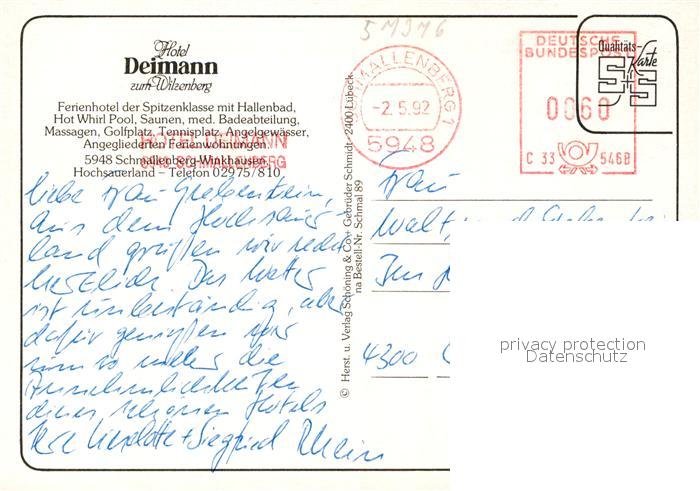 5 M9M6
Hotel
Deimann
zum Wilzenberg
Ferienhotel der Spitzenklasse mit Hallenbad,
Hot Whirl Pool, Saunen, med. Badeabteilung,
Massagen, Golfplatz, Tennisplatz, Angelgewässer,
Angegliederten Ferienwohnungen.
5948 Schmallenberg-Winkhausen
Hochsauerland – Telefon 02975/810
HOTEL DEIMANN
5948 SCHMALLENBERG
SCHMALLENBERG 1
-2.5.92
5948
DEUTSCHE
BUNDESPOST
0060
C 33 546B
Qualitäts-
Karte
S+S
© Herst. u. Verlag Schöning & Co + Gebrüder Schmidt · 2400 Lübeck
na Bestell-Nr. Schmal 89
Liebe Frau Grebenstein,
aus dem Hochsauer-
land grüßen wir recht
herzlich. Das Wetter
ist unbeständig, aber
dafür genießen wir
um so mehr die
Annehmlichkeiten
dieses schönen Hotels
Ihre Liselotte + Siegfried Rhein
Frau
4300
privacy protection
Datenschutz